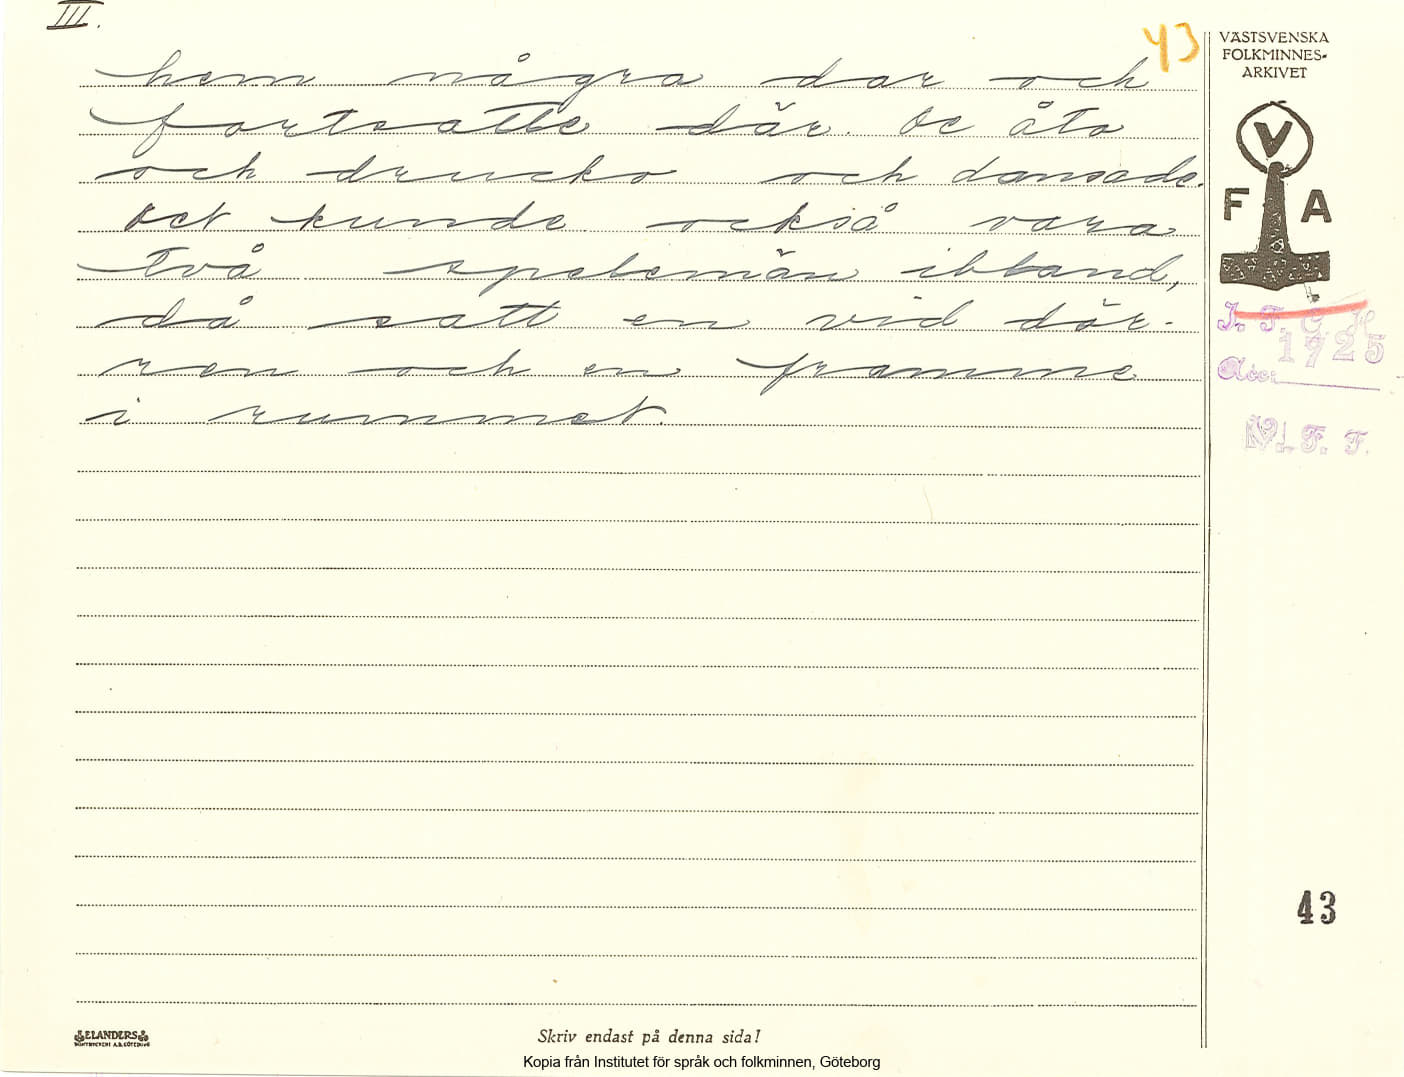 III.
43
hem några dar och
fortsatte där. De åto
och drucko och dansade.
Det kunde också vara
två spelemän ibland,
då satt en vid dör-
ren och en framme
i rummet.
VÄSTSVENSKA
FOLKMINNES-
ARKIVET
V
F A
I. F. G. H.
1725
Acc:
V. F. F.
43
ELANDERS
BOKTRYCKERI A.B. GÖTEBORG
Skriv endast på denna sida!
Kopia från Institutet för språk och folkminnen, Göteborg